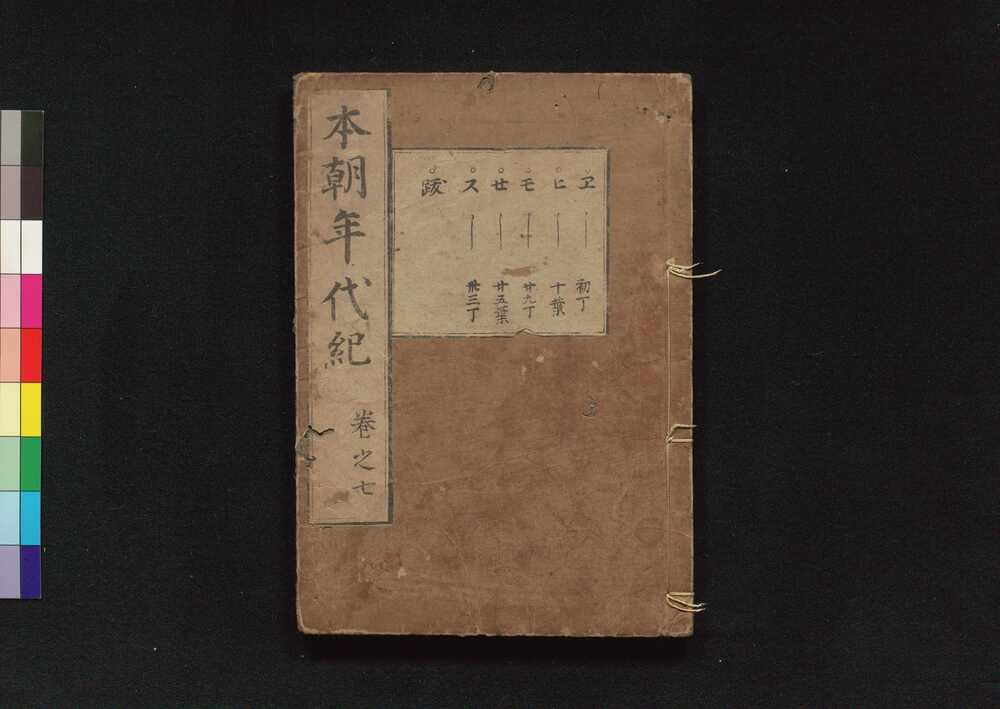 本朝年代紀 巻之七
ヱ 初丁
ヒ 十葉
モ 廿九丁
せ 廿五葉
ス 卅三丁
跋